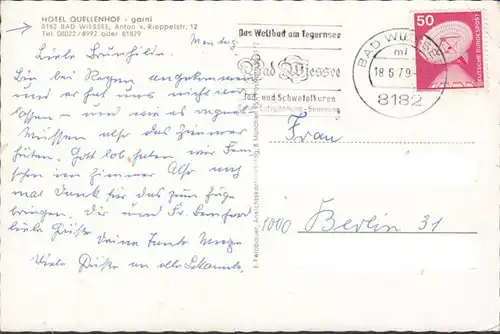 HOTEL QUELLENHOF - garni
8182 BAD WIESSEE, Anton v. Rieppelstr. 12
Tel. 08022/8992 oder 81879
Montag
Liebe Brunhilde.
Bin bei Regen angekommen
und er hat uns nicht ver
lassen - und wie es regnet
Müssen also das Zimmer
hüten. Gott lob haben wir Fern
sehen im Zimmer Also noch
mal Dank für das zum Zuge
bringen. Dir und Fr.
liebe Grüße Deine Tante
Viele Grüße an alle Bekannte.
Das Weltbad am Tegernsee
Bad Wiessee
Jod- und Schwefelkuren
BAD WIESSEE
mf
18.6.79
8182
50
DEUTSCHE BUNDESPOST
Frau
1000 Berlin 31
E. Felsbauer, Ansichtskartenverlag, 8 München